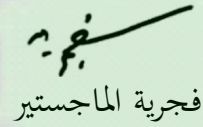 فجرية الماجستير